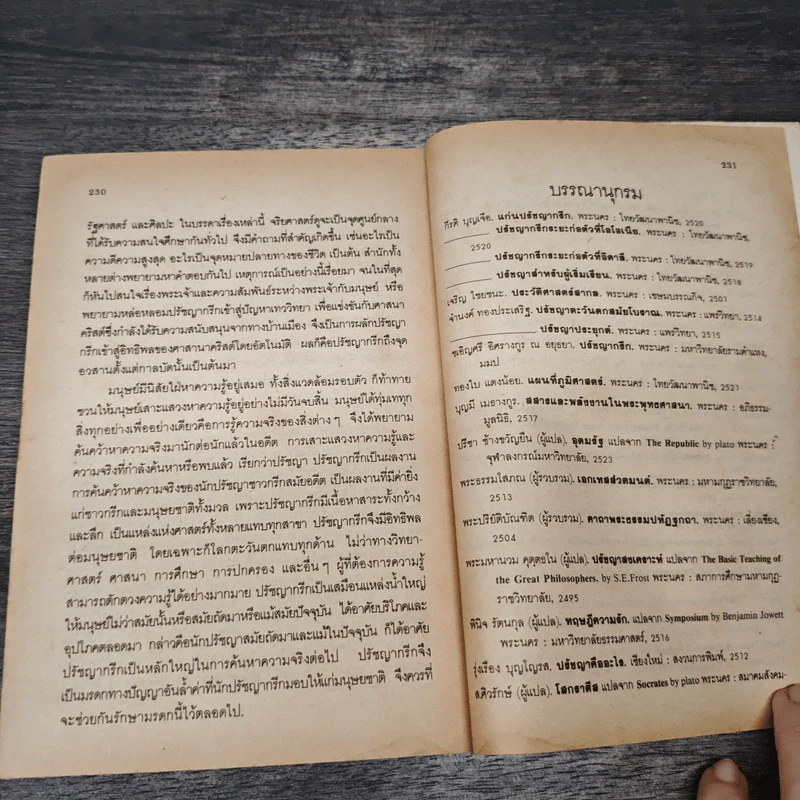 230
รัฐศาสตร์ และศิลปะ ในบรรดาเรื่องเหล่านี้ จริยศาสตร์ดูจะเป็นจุดศูนย์กลาง
ที่ได้รับความสนใจศึกษากันทั่วไป จึงมีคำถามที่สำคัญเกิดขึ้น เช่นอะไรเป็น
ความดีความสูงสุด อะไรเป็นจุดหมายปลายทางของชีวิต เป็นต้น สำนักทั้ง
หลายต่างพยายามหาคำตอบกันไป เหตุการณ์เป็นอย่างนี้เรื่อยมา จนในที่สุด
ก็หันไปสนใจเรื่องพระเจ้าและความสัมพันธ์ระหว่างพระเจ้ากับมนุษย์ หรือ
พยายามหล่อหลอมปรัชญากรีกเข้าสู่ปัญหาเทววิทยา เพื่อแข่งขันกับศาสนา
คริสต์ซึ่งกำลังได้รับความสนับสนุนจากทางบ้านเมือง จึงเป็นการผลักปรัชญา
กรีกเข้าสู่อิทธิพลของศาสนาคริสต์โดยอัตโนมัติ ผลก็คือปรัชญากรีกถึงจุด
อวสานตั้งแต่กาลบัดนั้นเป็นต้นมา
มนุษย์มีนิสัยใฝ่หาความรู้อยู่เสมอ ทั้งสิ่งแวดล้อมรอบตัว ก็ท้าทาย
ชวนให้มนุษย์เสาะแสวงหาความรู้อย่างไม่มีวันจบสิ้น มนุษย์ได้ทุ่มเททุก
สิ่งทุกอย่างเพื่ออย่างเดียวคือการรู้ความจริงของสิ่งต่าง ๆ จึงได้พยายาม
ค้นคว้าหาความจริงมานักต่อนักแล้วในอดีต การเสาะแสวงหาความรู้และ
ความจริงที่กำลังค้นหาหรือพบแล้ว เรียกว่าปรัชญา ปรัชญากรีกเป็นผลงาน
การค้นคว้าหาความจริงของนักปรัชญาชาวกรีกสมัยอดีต เป็นผลงานที่มีค่ายิ่ง
แก่ชาวกรีกและมนุษยชาติทั้งมวล เพราะปรัชญากรีกมีเนื้อหาสาระทั้งกว้าง
และลึก เป็นแหล่งแห่งศาสตร์ทั้งหลายแทบทุกสาขา ปรัชญากรีกจึงมีอิทธิพล
ต่อมนุษยชาติ โดยเฉพาะก็โลกตะวันตกแทบทุกด้าน ไม่ว่าทางวิทยา-
ศาสตร์ ศาสนา การศึกษา การปกครอง และอื่น ๆ ผู้ที่ต้องการความรู้
สามารถตักตวงความรู้ได้อย่างมากมาย ปรัชญากรีกเป็นเสมือนแหล่งน้ำใหญ่
ให้มนุษย์ไม่ว่าสมัยนั้นหรือสมัยถัดมาหรือแม้สมัยปัจจุบัน ได้อาศัยบริโภคและ
อุปโภคตลอดมา กล่าวคือนักปรัชญาสมัยถัดมาและแม้ในปัจจุบัน ก็ได้อาศัย
ปรัชญากรีกเป็นหลักใหญ่ในการค้นหาความจริงต่อไป ปรัชญากรีกจึง
เป็นมรดกทางปัญญาอันล้ำค่าที่นักปรัชญากรีกมอบให้แก่มนุษยชาติ จึงควรที่
จะช่วยกันรักษามรดกนี้ไว้ตลอดไป.
231
บรรณานุกรม
กีรติ บุญเจือ. แก่นปรัชญากรีก. พระนคร : ไทยวัฒนาพานิช, 2520
ปรัชญากรีกระยะก่อตัวที่ไอโอเนีย. พระนคร : ไทยวัฒนาพานิช,
2520
ปรัชญากรีกระยะก่อตัวที่อิตาลี. พระนคร : ไทยวัฒนาพานิช, 2519
ปรัชญาสำหรับผู้เริ่มเรียน. พระนคร : ไทยวัฒนาพานิช, 2518
เจริญ ไชยชนะ. ประวัติศาสตร์สากล. พระนคร : เขษมบรรณกิจ, 2501
จำนงค์ ทองประเสริฐ. ปรัชญาตะวันตกสมัยโบราณ. พระนคร : แพร่วิทยา, 2514
ปรัชญาประยุกต์. พระนคร : แพร่วิทยา, 2515
ชเอิญศรี อิศรางกูร ณ อยุธยา. ปรัชญากรีก. พระนคร : มหาวิทยาลัยรามคำแหง,
มมป
ทองใบ แตงน้อย. แผนที่ภูมิศาสตร์. พระนคร : ไทยวัฒนาพานิช, 2521
บุญมี เมธางกูร. สสารและพลังงานในพระพุทธศาสนา. พระนคร : อภิธรรม-
มูลนิธิ, 2517
ปรีชา ช้างขวัญยืน (ผู้แปล). อุตมรัฐ แปลจาก The Republic by plato พระนคร :
จุฬาลงกรณ์มหาวิทยาลัย, 2523
พระธรรมโสภณ (ผู้รวบรวม). เอกเทสสวดมนต์. พระนคร : มหามกุฏราชวิทยาลัย,
2513
พระปริยัติบัณฑิต (ผู้รวบรวม). คาถาพระธรรมปทัฏฐกถา. พระนคร : เลี่ยงเชียง,
2504
พระมหานวม คุตฺตธโน (ผู้แปล). ปรัชญาสงเคราะห์ แปลจาก The Basic Teaching of
the Great Philosophers. by S.E.Frost พระนคร : สภาการศึกษามหามกุฏ-
ราชวิทยาลัย, 2495
พินิจ รัตนกุล (ผู้แปล). ทฤษฎีความรัก. แปลจาก Symposium by Benjamin Jowett
พระนคร : มหาวิทยาลัยธรรมศาสตร์, 2516
รุ่งเรือง บุญโญรส. ปรัชญาคืออะไร. เชียงใหม่ : สงวนการพิมพ์, 2512
ส.ศิวรักษ์ (ผู้แปล). โสกราตีส แปลจาก Socrates by plato พระนคร : สมาคมสังคม-